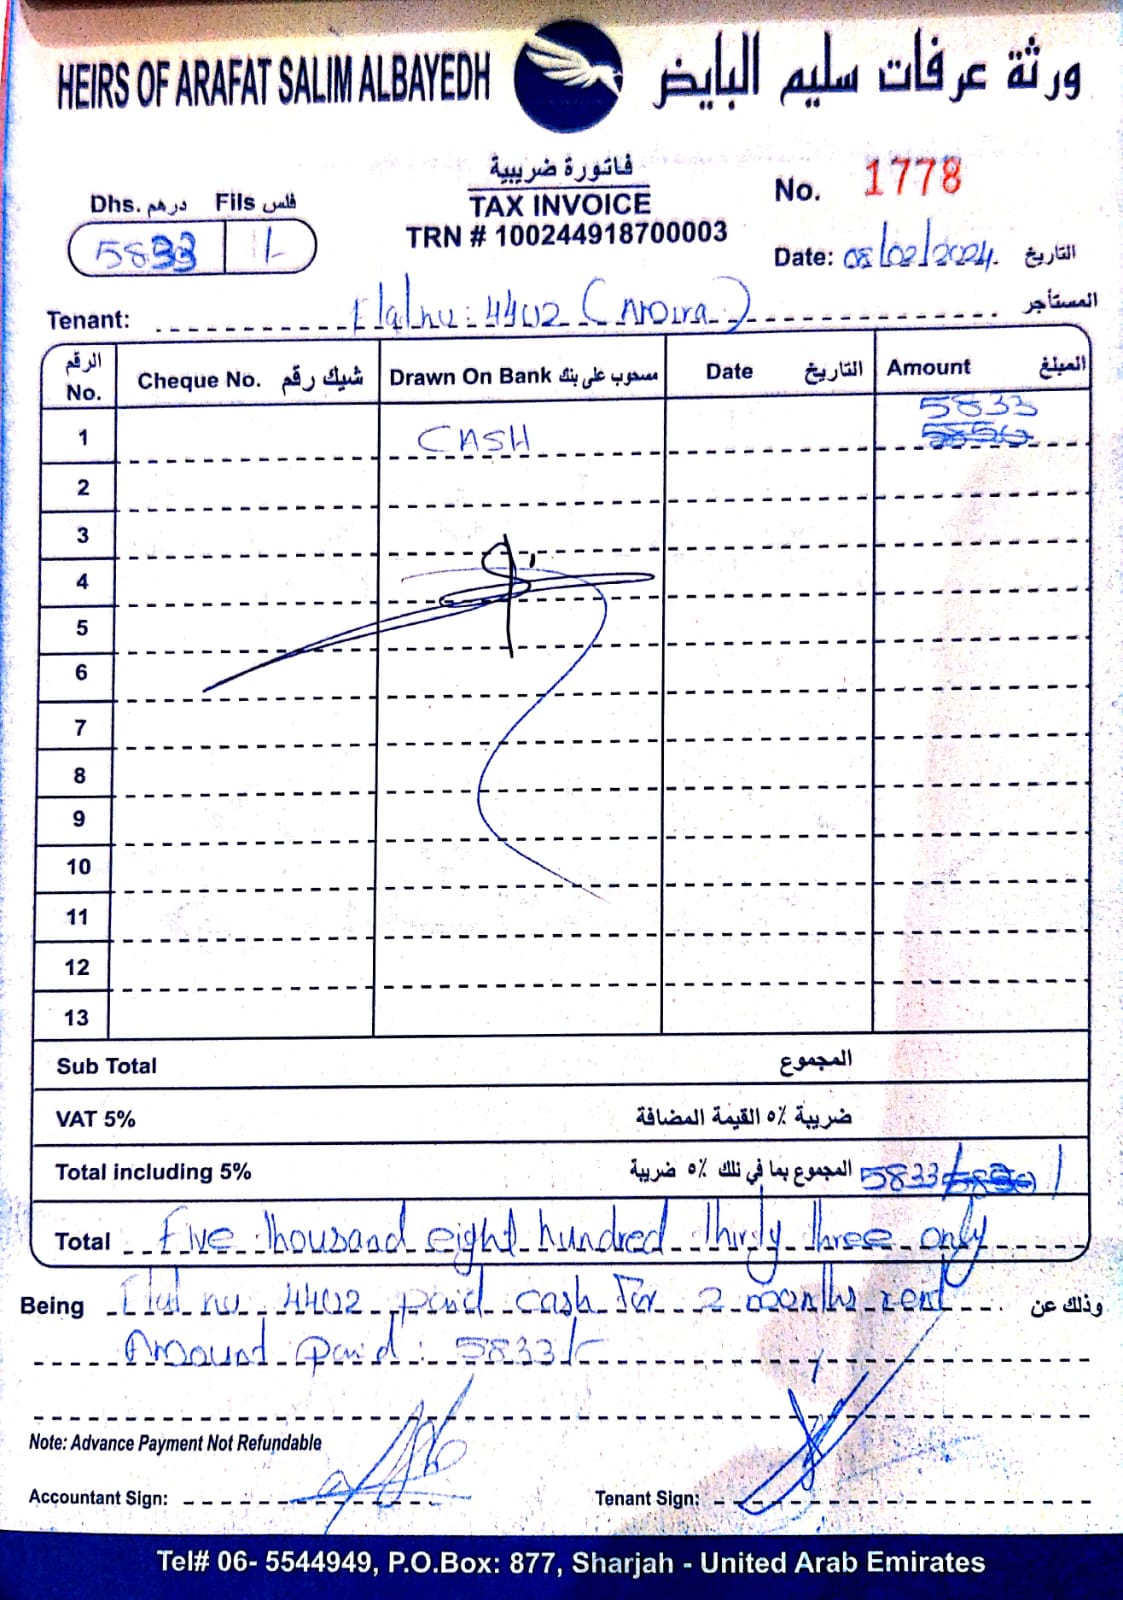 HEIRS OF ARAFAT SALIM ALBAYEDH ورثة عرفات سليم البايض
فاتورة ضريبية
TAX INVOICE
TRN # 100244918700003
No. 1778
Dhs. درهم Fils فلس
5833 /-
Date: 08/02/2024 التاريخ
Tenant: Flat no: 4402 المستأجر
الرقم No. Cheque No. شيك رقم Drawn On Bank مسحوب على بنك Date التاريخ Amount المبلغ
1 CASH 5833
2
3
4
5
6
7
8
9
10
11
12
13
Sub Total المجموع
VAT 5% ضريبة ٥٪ القيمة المضافة
Total including 5% المجموع بما في ذلك ٥٪ ضريبة 5833/
Total Five thousand eight hundred thirty three only
Being Flat no. 4402 paid cash for 2 months rent وذلك عن
Amount paid: 5833/-
Note: Advance Payment Not Refundable
Accountant Sign: Tenant Sign:
Tel# 06- 5544949, P.O.Box: 877, Sharjah - United Arab Emirates